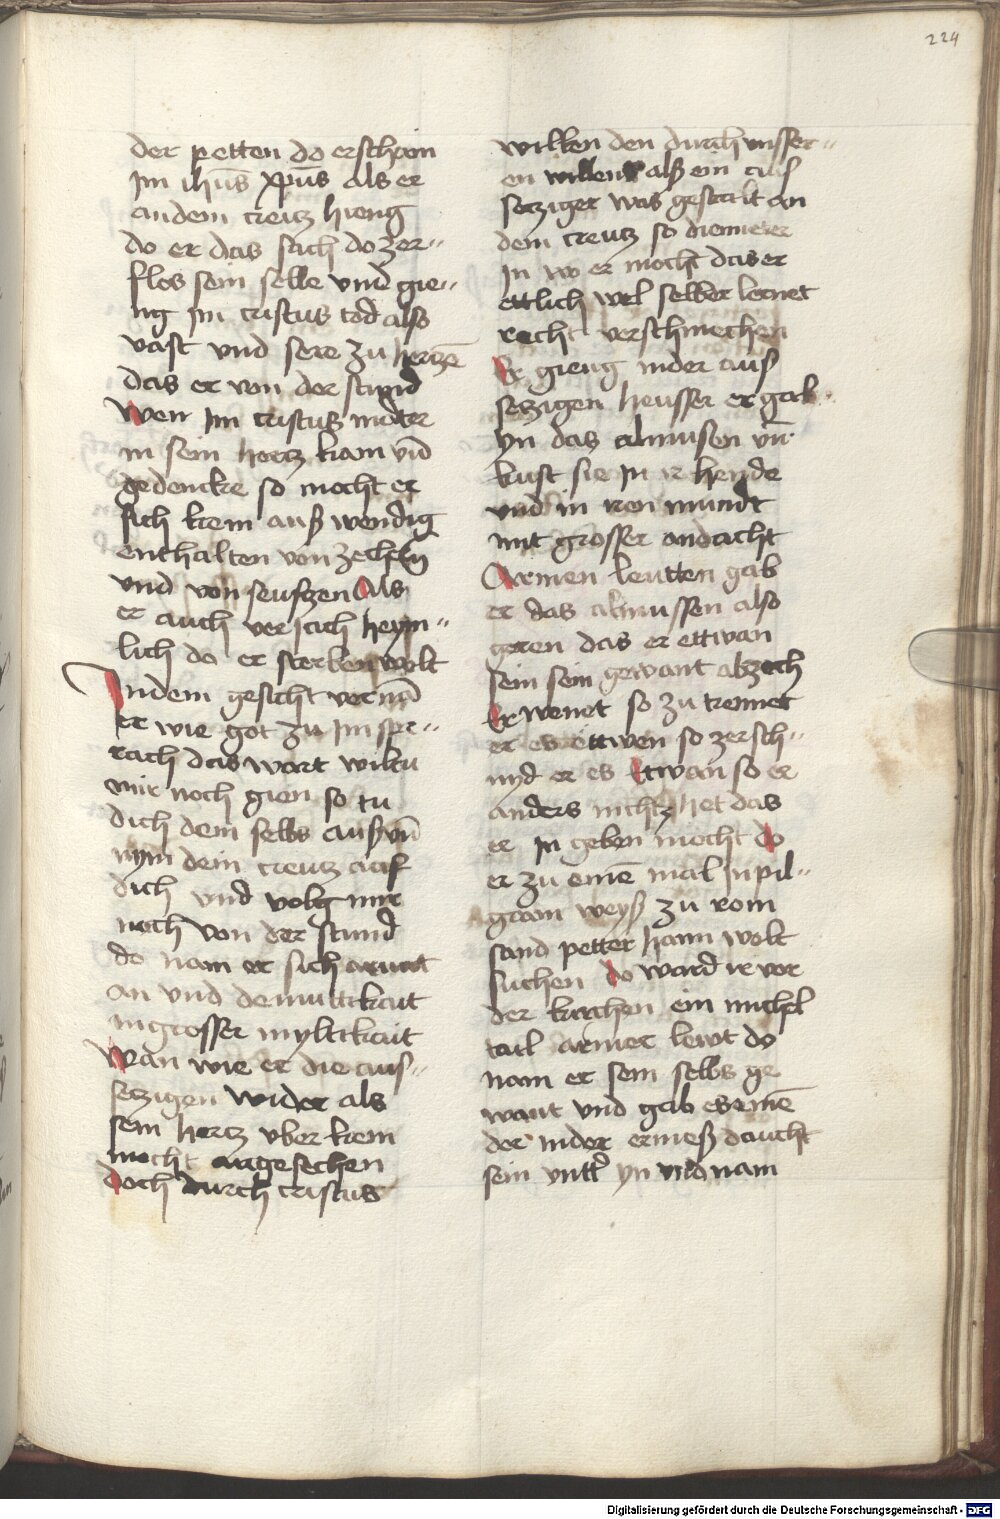 224
der petten do erschein
Im ihūs xp̄us als er
an dem creutz hieng
do er das sach do zer„
flos sein selle vnd gie„
ng Im cristus tod also
vast vnd sere zu hertzē
das er von der stund
Wen Im cristus marter
in sein hertz kam vnd
gedencke so mocht er
sich kem auß wendig
enthalten von zechern
vnd von seufzen Als
er auch veriach heym„
lich do er sterben wolt
Indem gesicht vernā
er wie got zu Im spr„
rach das wart wiltu
mir noch gien so tu
dich dein selbs auß vn̄
nym dein creutz auf
dich vnd volg mir
noch von der stund
do nam er sich armut
an vnd demuttikait
in grosser myltikait
Wan wie er die aus„
setzigen wider als
sein hertz vber kem
mocht angesechen
doch durch cristus
willen den durch vnsser„
en willen alß ein auß
setziger was gestalt an
dem creutz so dienet er
In wo er mocht das er
ettlich wel selber lernet
recht verschmechen
Er gieng in der auß
setzigen heusser er gab
yn das almusen vn̄
kust sie In ir hende
vnd in iren mundt
mit grosser andacht
Armen leutten gab
er das almussen also
geren das er ettwan
sein sein gewant abzoch
Er wenet so zu trennet
er es ettwen so zersch„
nyd er es Etwan so er
anders nichtz het das
er In geben mocht do
er zu einē mal In pil„
gram weyß zu rom
sand petter hann wolt
suchen do ward ir vor
der kirchen ein michel
tail armer lewt do
nam er sein selbs ge
want vnd gab es einē
der in der ermeß daucht
sein vntter yn vnd nam
Digitalisierung gefördert durch die Deutsche Forschungsgemeinschaft - DFG